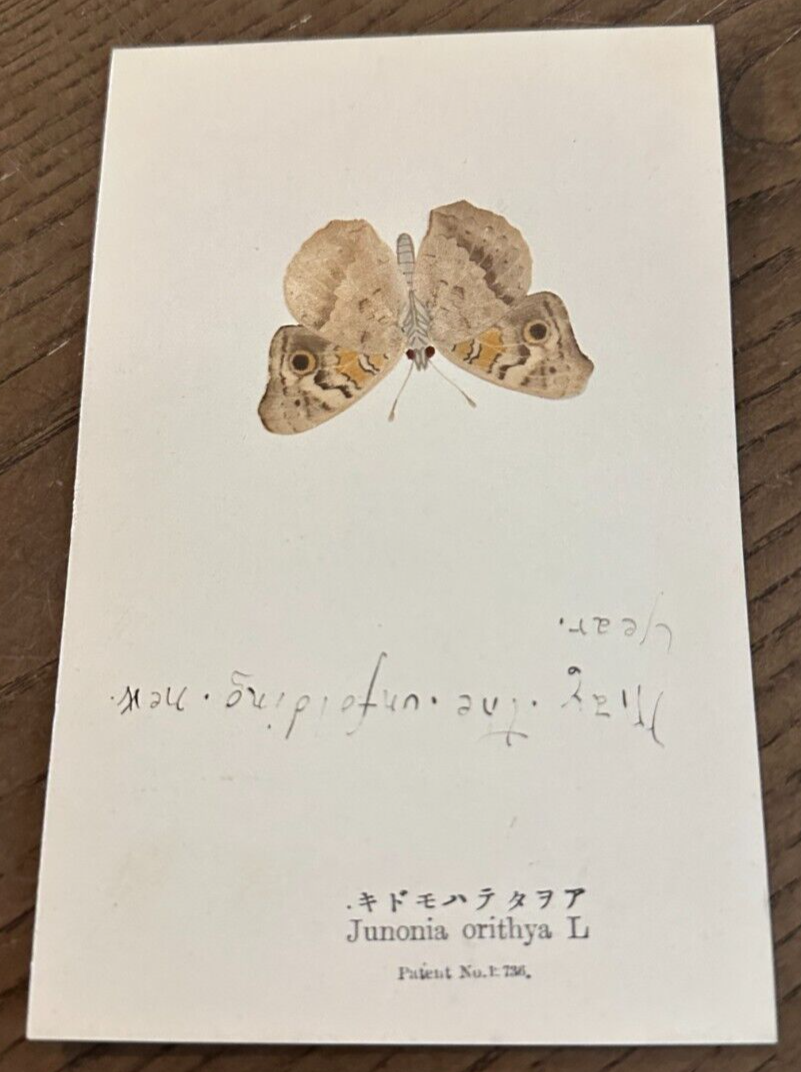 May · the · unfolding · new ·
year.
アヲタテハモドキ.
Junonia orithya L
Patent